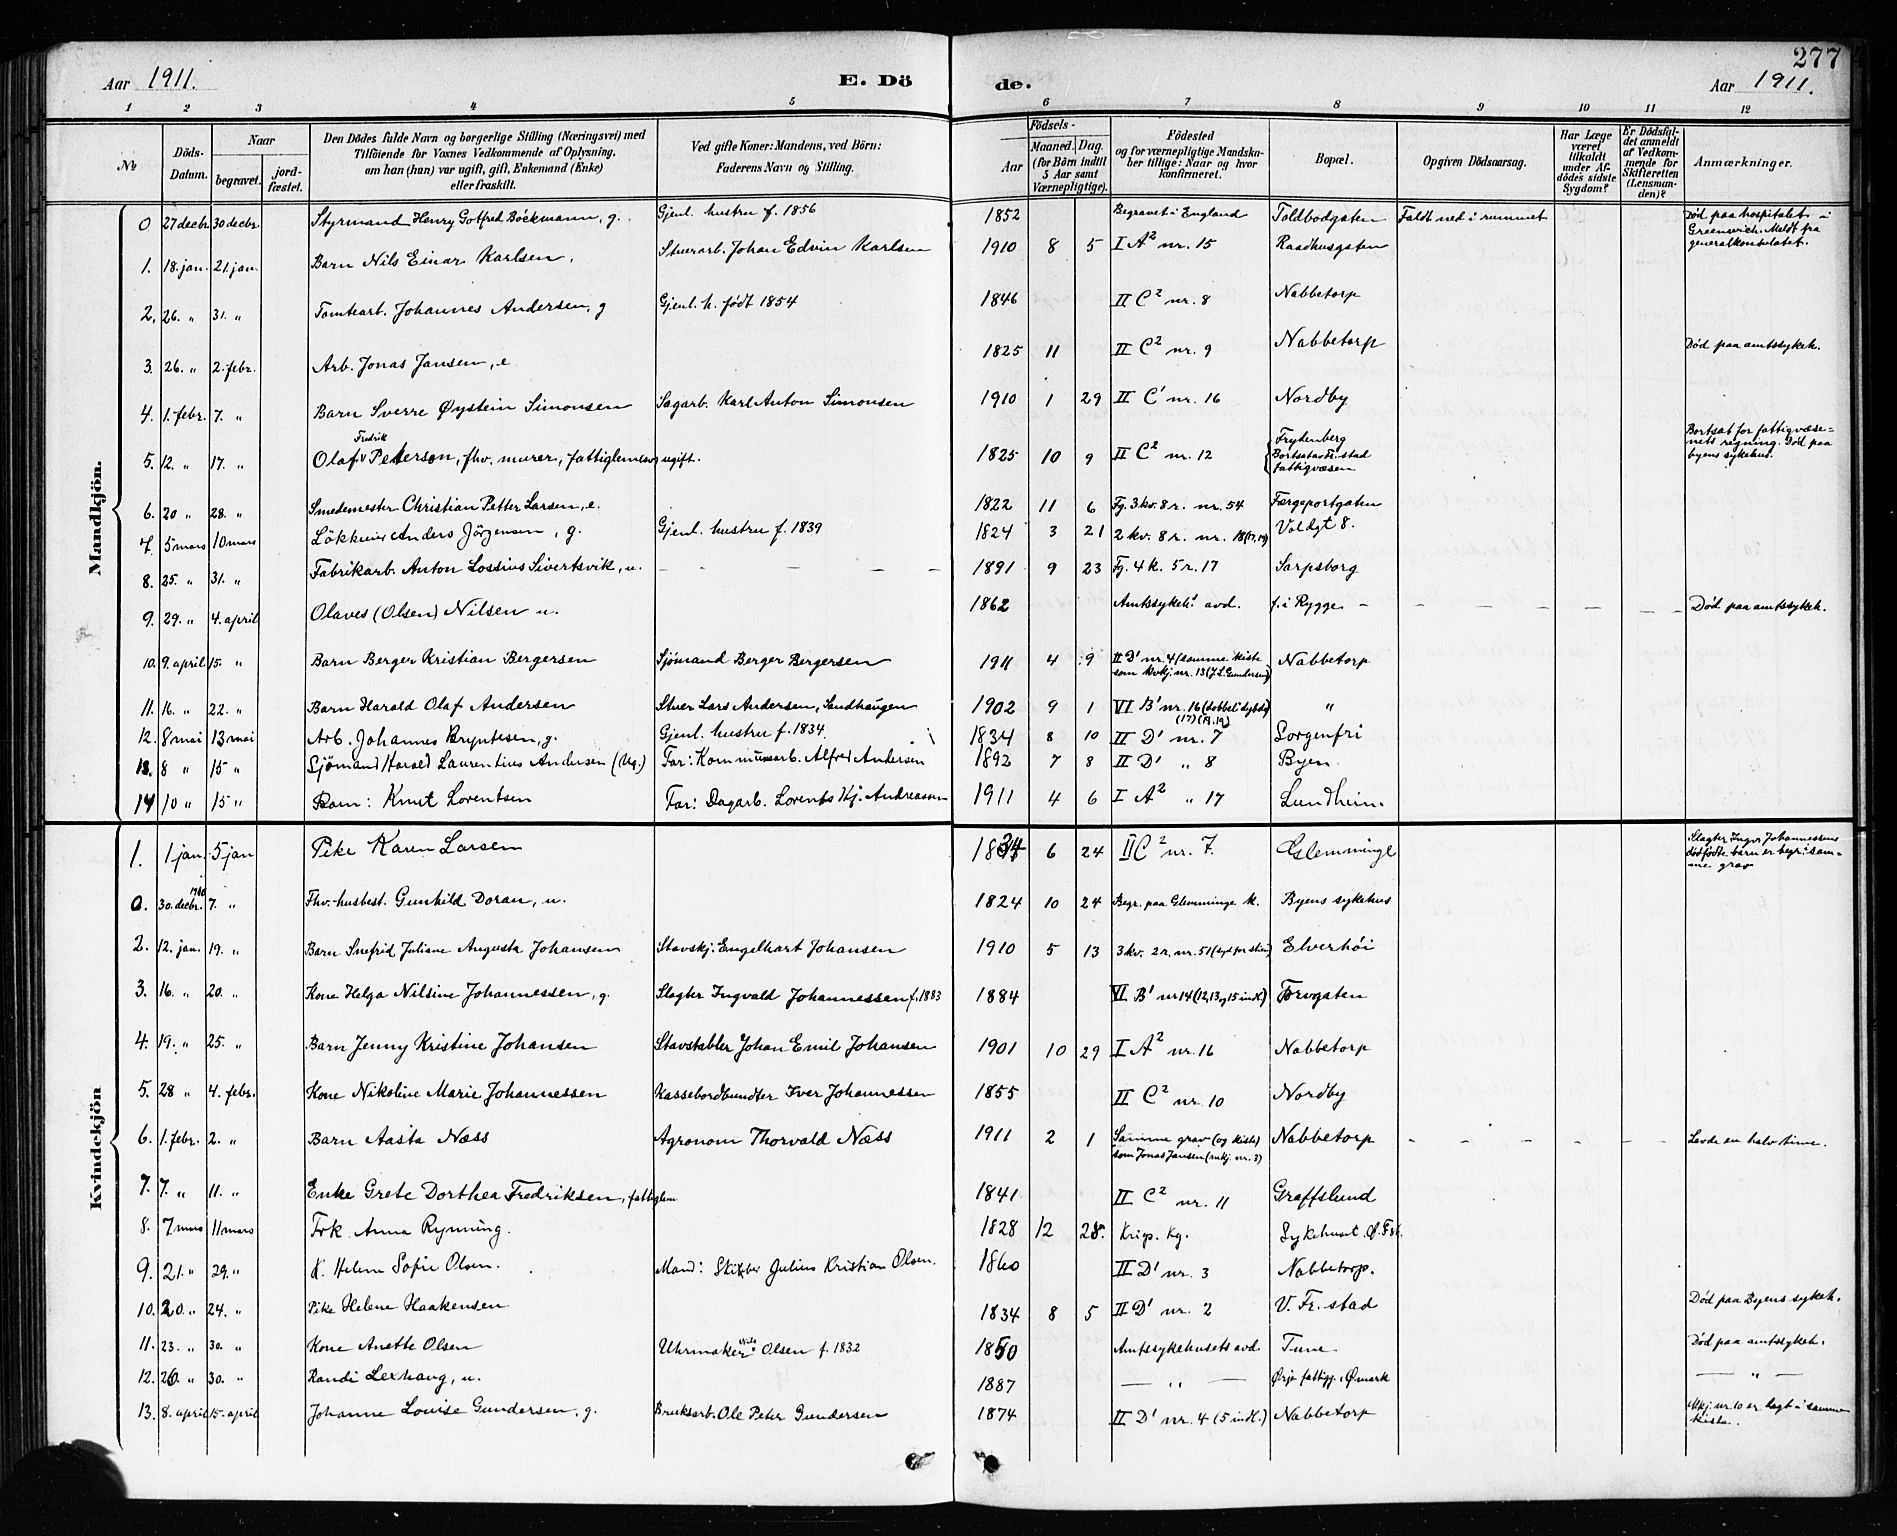 277
Aar 1911. E. Dö de. Aar 1911.
1 2 3 4 5 6 7 8 9 10 11 12
No
Döds-Datum.
Naar
begravet.
jord-fæstet.
Den Dödes fulde Navn og borgerlige Stilling (Næringsvei) med Tilföiende for Voxnes Vedkommende af Oplysning, om han (hun) var ugift, gift, Enkemand (Enke) eller fraskilt.
Ved gifte Koner: Mandens, ved Börn: Faderens Navn og Stilling.
Födsels-
Aar
Maaned. Dag.
(for Börn indtil 5 Aar samt Værnepligtige).
Födested og for værnepligtige Mandskaber tillige: Naar og hvor konfirmeret.
Bopæl.
Opgiven Dödsaarsag.
Har Læge været tilkaldt under Afdödes sidste Sygdom?
Er Dödsfaldet anmeldt af Vedkommende for Skifteretten (Lensmanden)?
Anmærkninger.
Mandkjön.
0 27 decbr. 30 decbr. Styrmand Henry Gotfred Böckmann, g. Gjenl. hustru f. 1856 1852 Begravet i England Toldbodgaten Faldt ned i rummet Død paa hospitalet i Greenwich. Meldt fra generalkonsulatet.
1. 18. jan. 21. jan. Barn Nils Einar Karlsen, Stuerarb. Johan Edvin Karlsen 1910 8 5 I A² nr. 15 Raadhusgaten
2. 26. " 31. " Tomtearb. Johannes Andersen, g Gjenl. h. født 1854 1846 II C² nr. 8 Nabbetorp
3. 26. " 2. febr. Arb. Jonas Jansen, e 1825 11 II C² nr. 9 Nabbetorp Død paa amtssykeh.
4. 1. febr. 7. " Barn Sverre Øystein Simonsen Sagarb. Karl Anton Simonsen 1910 1 29 II C' nr. 16 Nordby
5. 12. " 17. " Olaf Fredrik Petersen, fhv. murer, fattiglem, ugift. 1825 10 9 II C² nr. 12 Frydenberg Bortsat av Fr.stad fattigvæsen Bortsat for fattigvæsenets regning. Død paa byens sykehus.
6. 20 " 28. " Smedemester Christian Petter Larsen, e. 1822 11 6 Fg. 3 kv. 8 r. nr. 54 Færgeportgaten
7. 5 mars 10 mars Anders Jörgensen, g. Gjenl. hustru f. 1839 1824 3 21 2 kv. 8 r. nr. 18 (17, 19) Voldgt 8.
8. 25. " 31. " Fabrikarb. Anton Lossius Sivertsvik, u. – – – – – 1891 9 23 Fg. 4 k. 5 r. 17 Sarpsborg
9. 29. " 4. april Olaves (Olsen) Nilsen u. 1862 Amtssykeh. avd. f. i Rygge – – – – – Død paa amtssykeh.
10. 9. april 15. " Barn Berger Kristian Bergersen Sjömand Berger Bergersen 1911 4 9 II D' nr. 4 (samme kiste som kvkj. nr. 13 (J. L. Gundersen) Nabbetorp
11. 16. " 22. " Barn Harald Olaf Andersen Stuer Lars Andersen, Sandhaugen 1902 9 1 VI B' nr. 16 (dobbelt dybde) (17) "
12. 8 mai 13 mai Arb. Johannes Bryntesen, g. Gjenl. hustru f. 1834 1834 8 10 II D' nr. 7 Sorgenfri
13. 8 " 15 " Sjömand Harald Laurentius Andersen (Ug.) Far: Kommunearb. Alfred Andersen 1892 7 8 II D' " 8 Byen
14 10 " 15 " Barn: Knut Lorentsen Far: Dagarb. Lorents Kj. Andreassen 1911 4 6 I A² " 17 Lundheim.
Kvindekjön
1. 1 jan. 5 jan Pike Karen Larsen 1834 6 24 II C² nr. 7. Glemminge Slagter Ingv. Johannessens dødfødte barn er begr. i samme grav
0. 30. decbr. 1910 7. " Fhv. husbest. Gunhild Doran, u. 1824 10 24 Begr. paa Glemminge k. Byens sykehus
2. 12. jan. 19. " Barn Snefrid Juliane Augusta Johansen Stavskj. Engelhart Johansen 1910 5 13 3 kv. 2 r. nr. 51 (syd for stien) Elverhöi
3. 16. " 20. " Kone Helga Nilsine Johannessen, g. Slagter Ingvald Johannessen f. 1883 1884 VI B' nr 14 (12, 13 og 15 indk.) Torvgaten
4. 19. " 25. " Barn Jenny Kristine Johansen Stavstabler Johan Emil Johansen 1901 10 29 I A² nr. 16 Nabbetorp
5. 28 " 4. febr. Kone Nikoline Marie Johannessen Kassebordbundter Iver Johannessen 1855 II C² nr. 10 Nordby
6. 1. febr. 2. " Barn Aasta Næss Agronom Thorvald Næss 1911 2 1 Samme grav (og kiste) som Jonas Jansen (mkj. nr. 3) Nabbetorp – – – – – Levde en halv time.
7. 7. " 11. " Enke Grete Dorthea Fredriksen, fattiglem 1841 II C² nr. 11 Graffslund
8. 7. mars 11 mars Frk Anna Rynning. 1828 12 28. Krigs. Kg. Sykehuset. Ø. Fst.
9. 21. " 29. " K. Helene Sofie Olsen. Mand: Skibber Julius Kristian Olsen. 1860 II D' nr. 3 Nabbetorp.
10. 20. " 24. " Pike Helene Haakensen 1834 8 5 II D' nr. 2 V. Fr. stad Død paa Byens sykeh.
11. 23. " 30. " Kone Anette Olsen Uhrmaker Nils Olsen f. 1832 1850 Amtssykehusets avd Tune Død paa amtssykeh.
12. 26. " 30. " Randi Lexhaug, u. 1887 — " — Ørje fattigg. Ømark — " —
13. 8. april 15. april Johanne Louise Gundersen, g. Bruksarb. Ole Peter Gundersen 1874 II D' nr. 4 (5 indk.) Nabbetorp Mkj. nr. 10 er lagt i samme kiste.